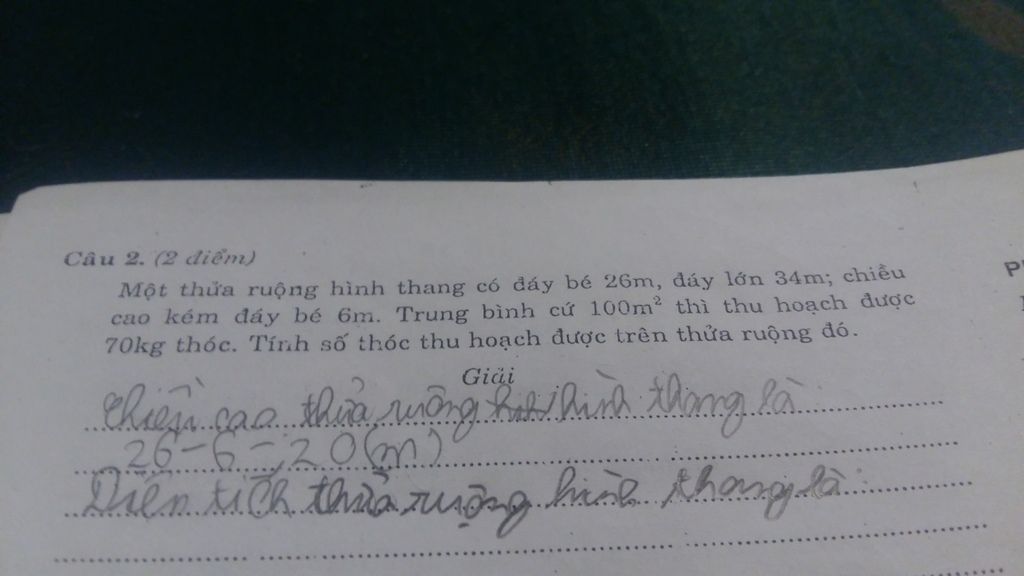 Câu 2. (2 điểm)
Một thửa ruộng hình thang có đáy bé 26m, đáy lớn 34m; chiều
cao kém đáy bé 6m. Trung bình cứ 100m² thì thu hoạch được
70kg thóc. Tính số thóc thu hoạch được trên thửa ruộng đó.
Giải
Chiều cao thửa ruộng hình thang là
26-6=20(m)
Diện tích thửa ruộng hình thang là: